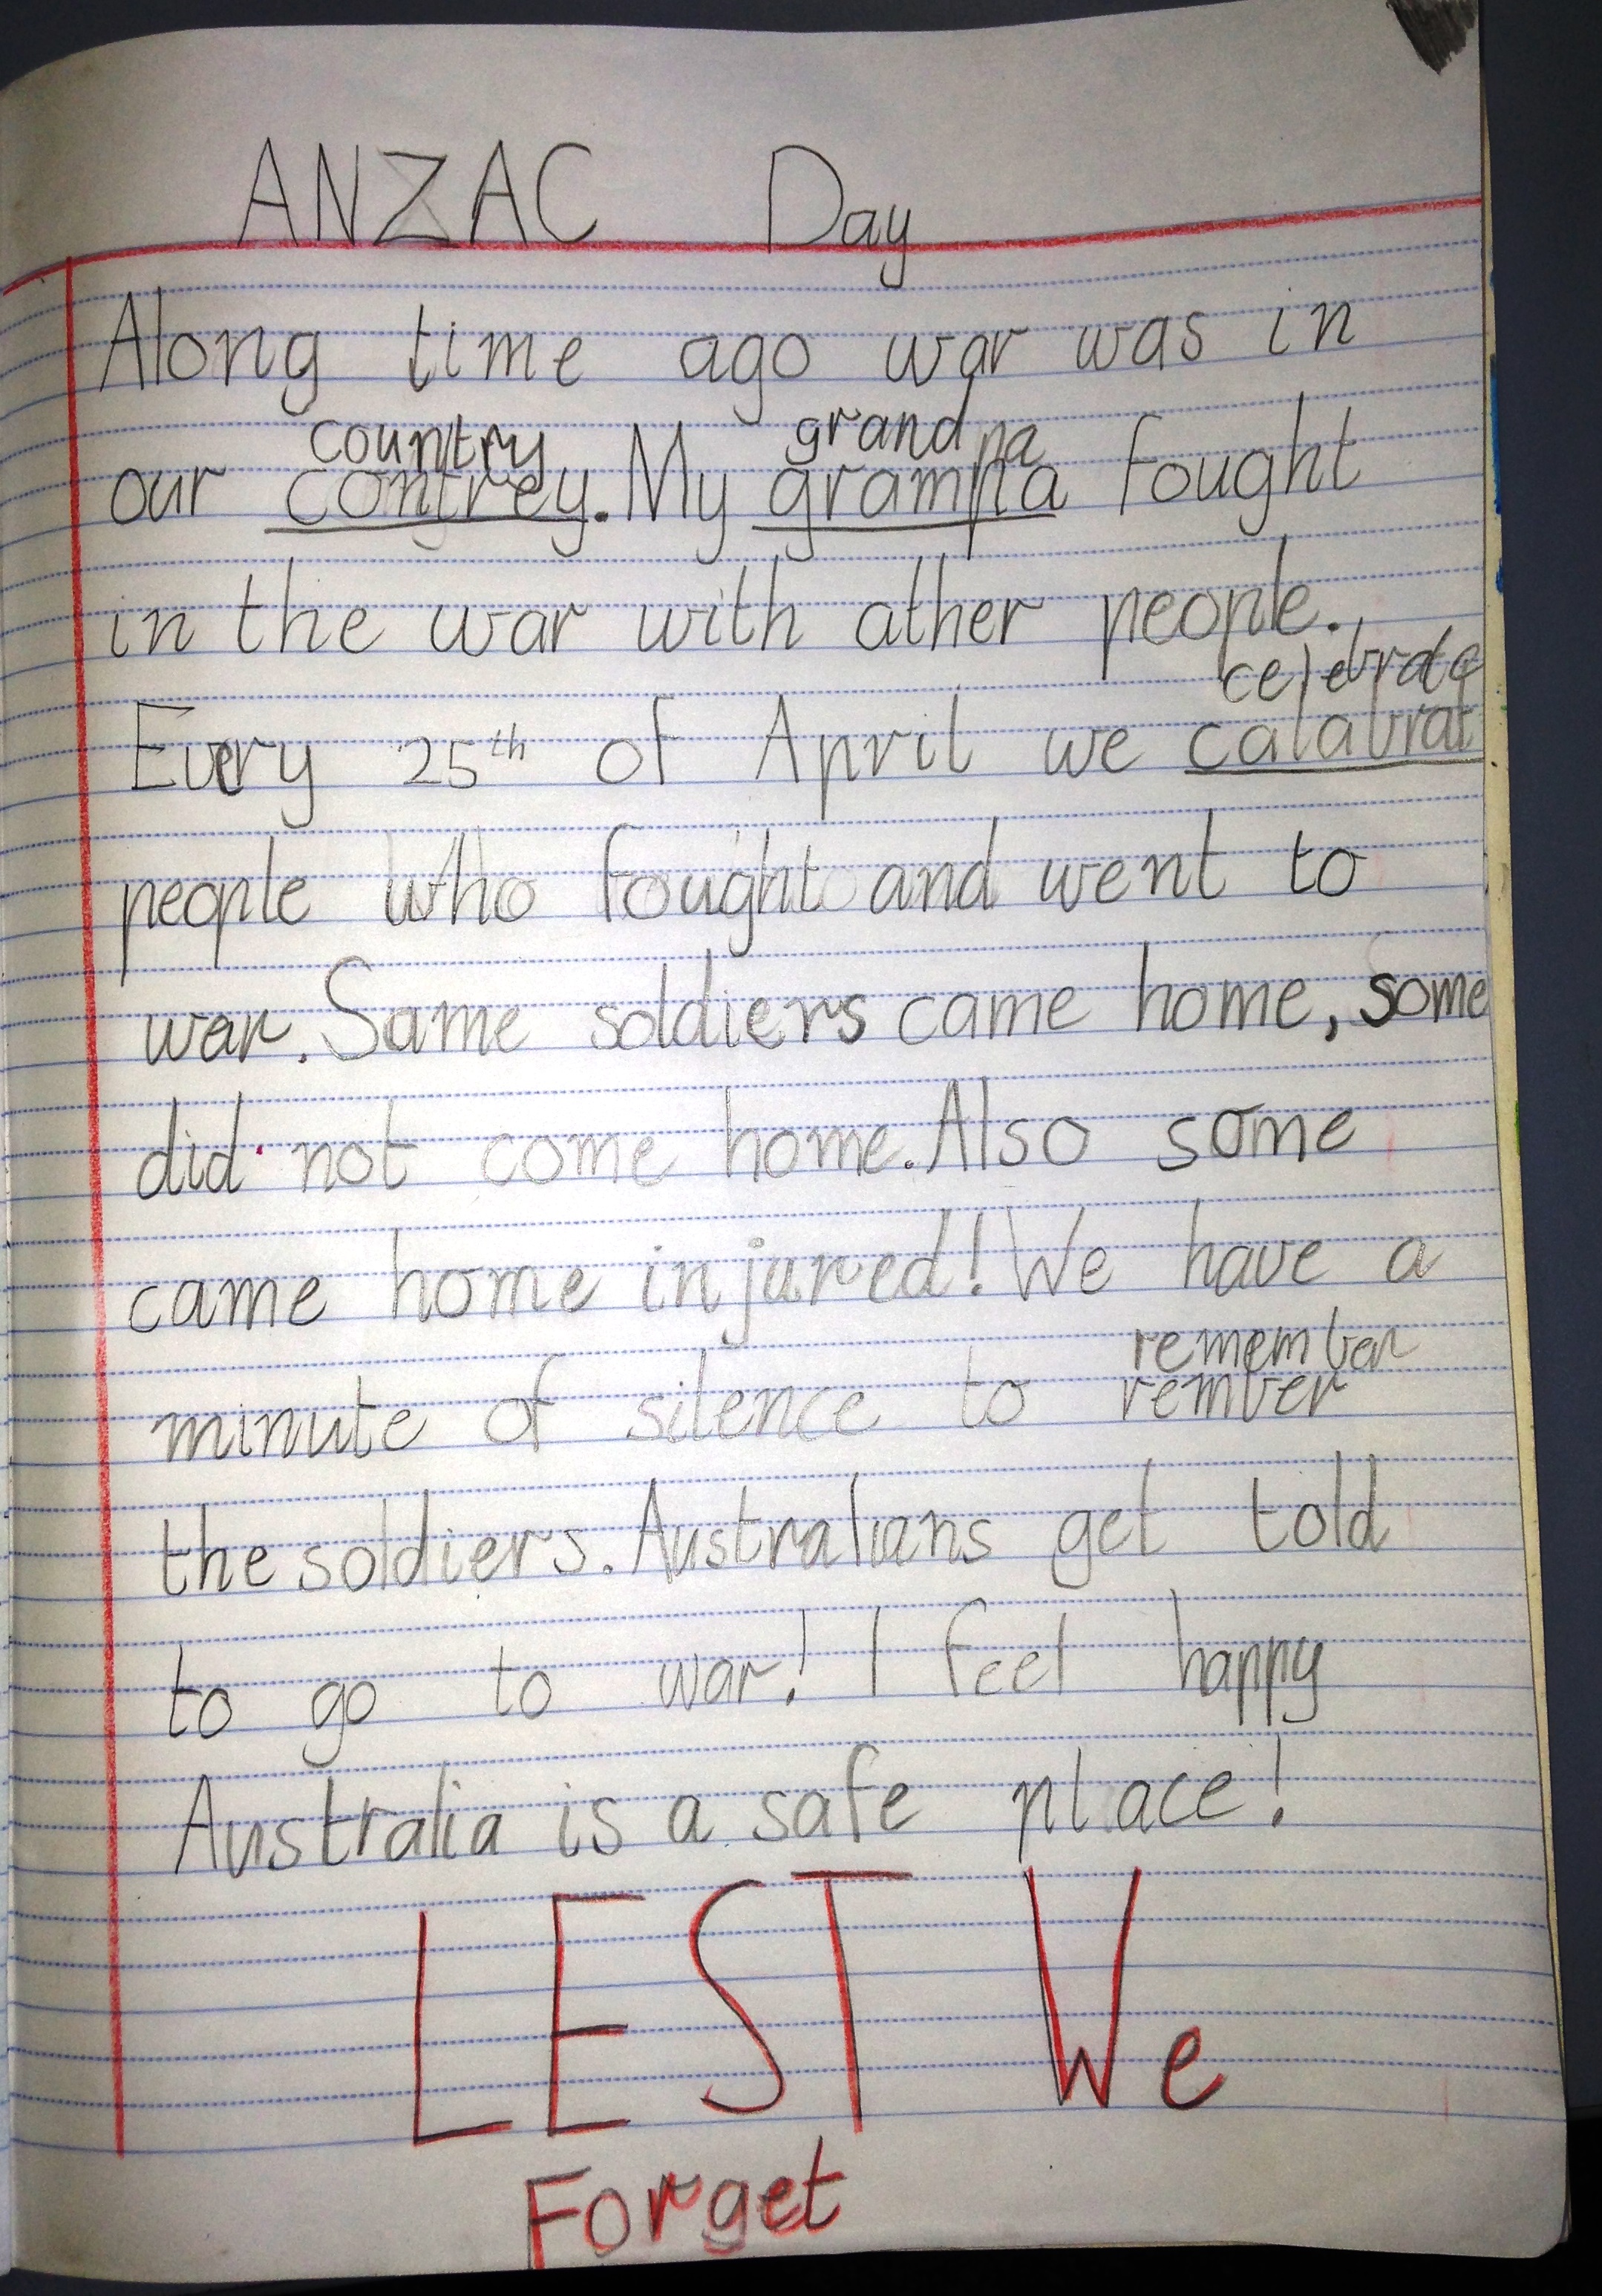 ANZAC Day
Along time ago war was in
country grandpa
our contrey. My grampa fought
in the war with ather people.
celebrate
Every 25th of April we calabrat
people who fought and went to
war. Same soldiers came home, some
did not come home. Also some
came home injured! We have a
remember
minute of silence to rember
the soldiers. Australians get told
to go to war! I feel happy
Australia is a safe place!
LEST We
Forget